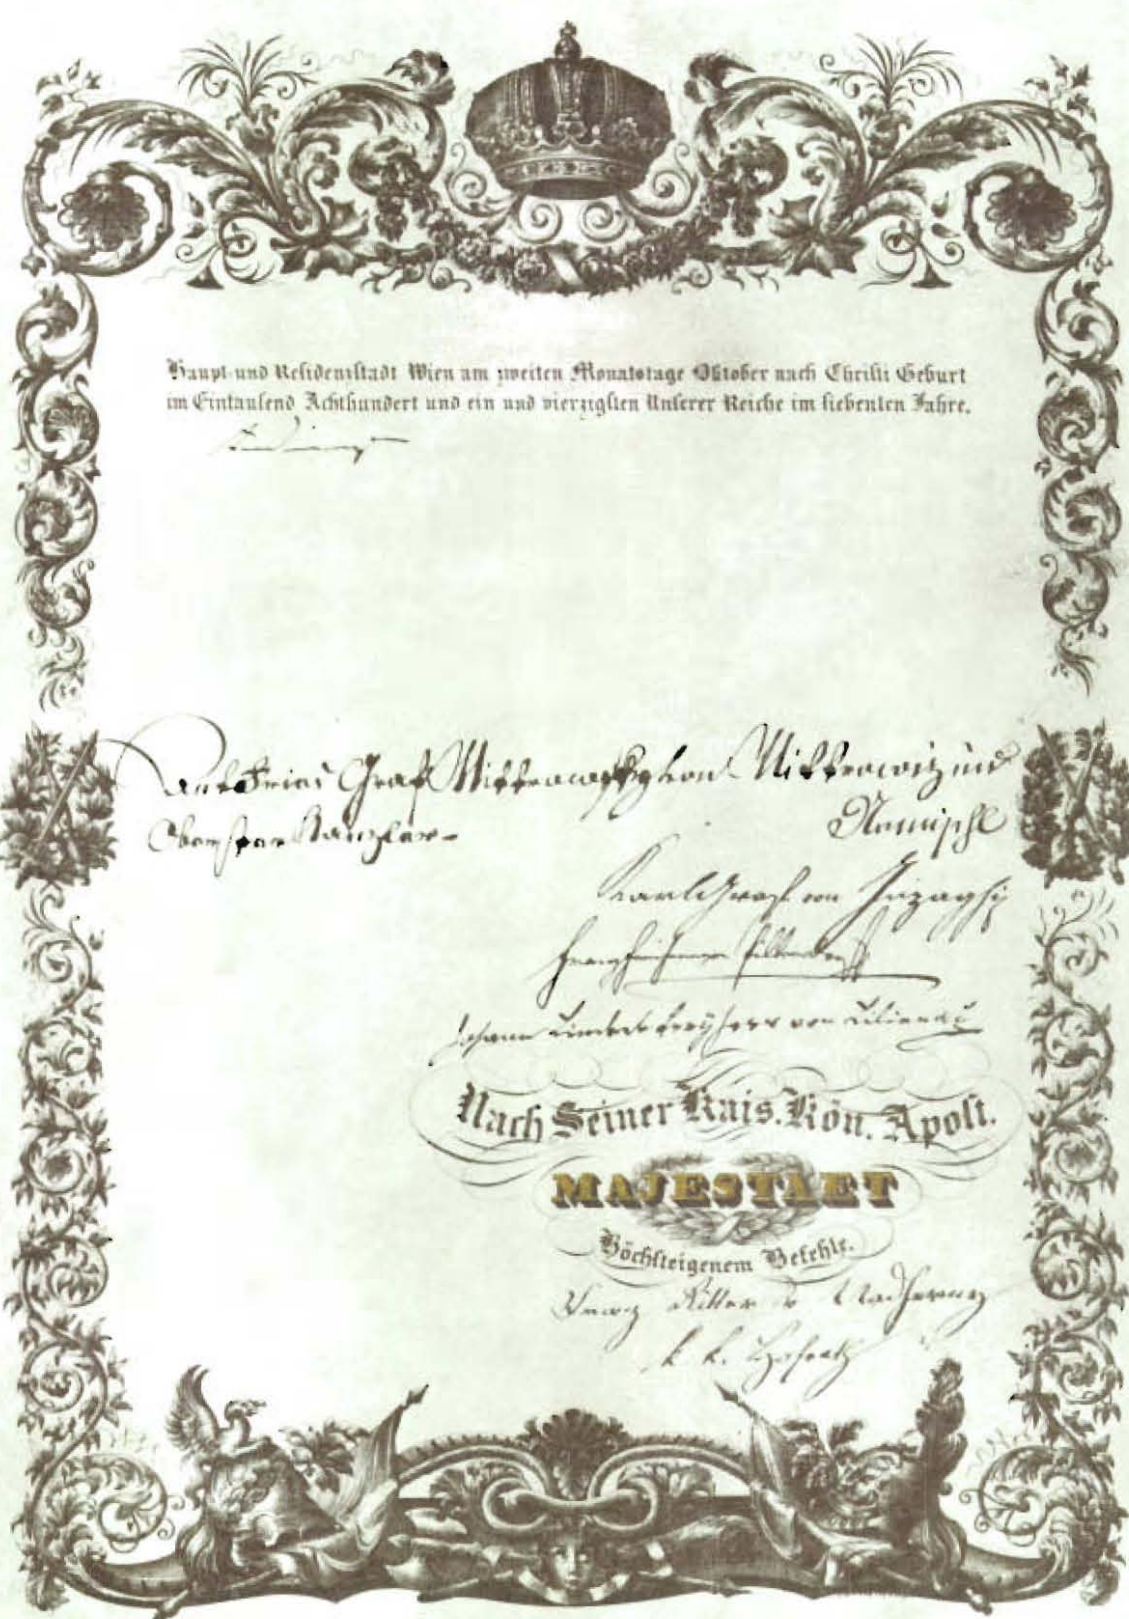 Haupt- und Residenzstadt Wien am zweiten Monatstage Oktober nach Christi Geburt
im Eintausend Achthundert und ein und vierzigsten Unserer Reiche im siebenten Jahre.
Ferdinand
Anton Friedrich Graf Mittrowsky von Mittrowitz und
Nemischl
Oberster Kanzler
Karl Graf von Inzaghi
Franz Freiherr von Pillersdorff
Johann Limbeck Freyherr von Lilienau
Nach Seiner Kais. Kön. Apost.
MAJESTAET
Höchsteigenem Befehle.
Franz Ritter v Nadherny
k. k. Hofrath